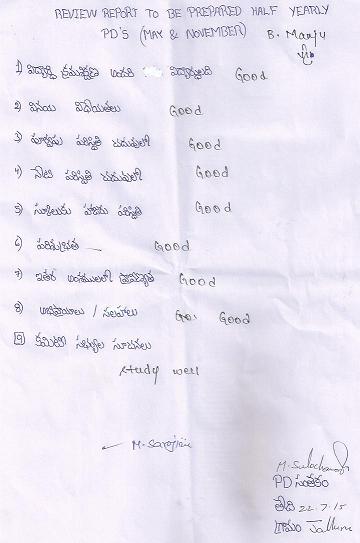 REVIEW REPORT TO BE PREPARED HALF YEARLY
PD'S (MAY & NOVEMBER) B. Manju
1) విద్యార్థి క్రమశిక్షణ విద్యార్థులది Good
2) వినయ విధేయతలు Good
3) పూర్వపు పరిస్థితి చదువులో Good
4) నేటి పరిస్థితి చదువులో Good
5) స్కూలుకు హాజరు పరిస్థితి Good
6) పరిశుభ్రత — Good
7) ఇతర అంశములలో ప్రావీణ్యత Good
8) అభిప్రాయాలు / సలహాలు Go. Good
9) కమిటీ సభ్యుల సూచనలు
study well
M. Sarojini
M. Sulochana
PD సంతకం
తేది 22.7.15
గ్రామం